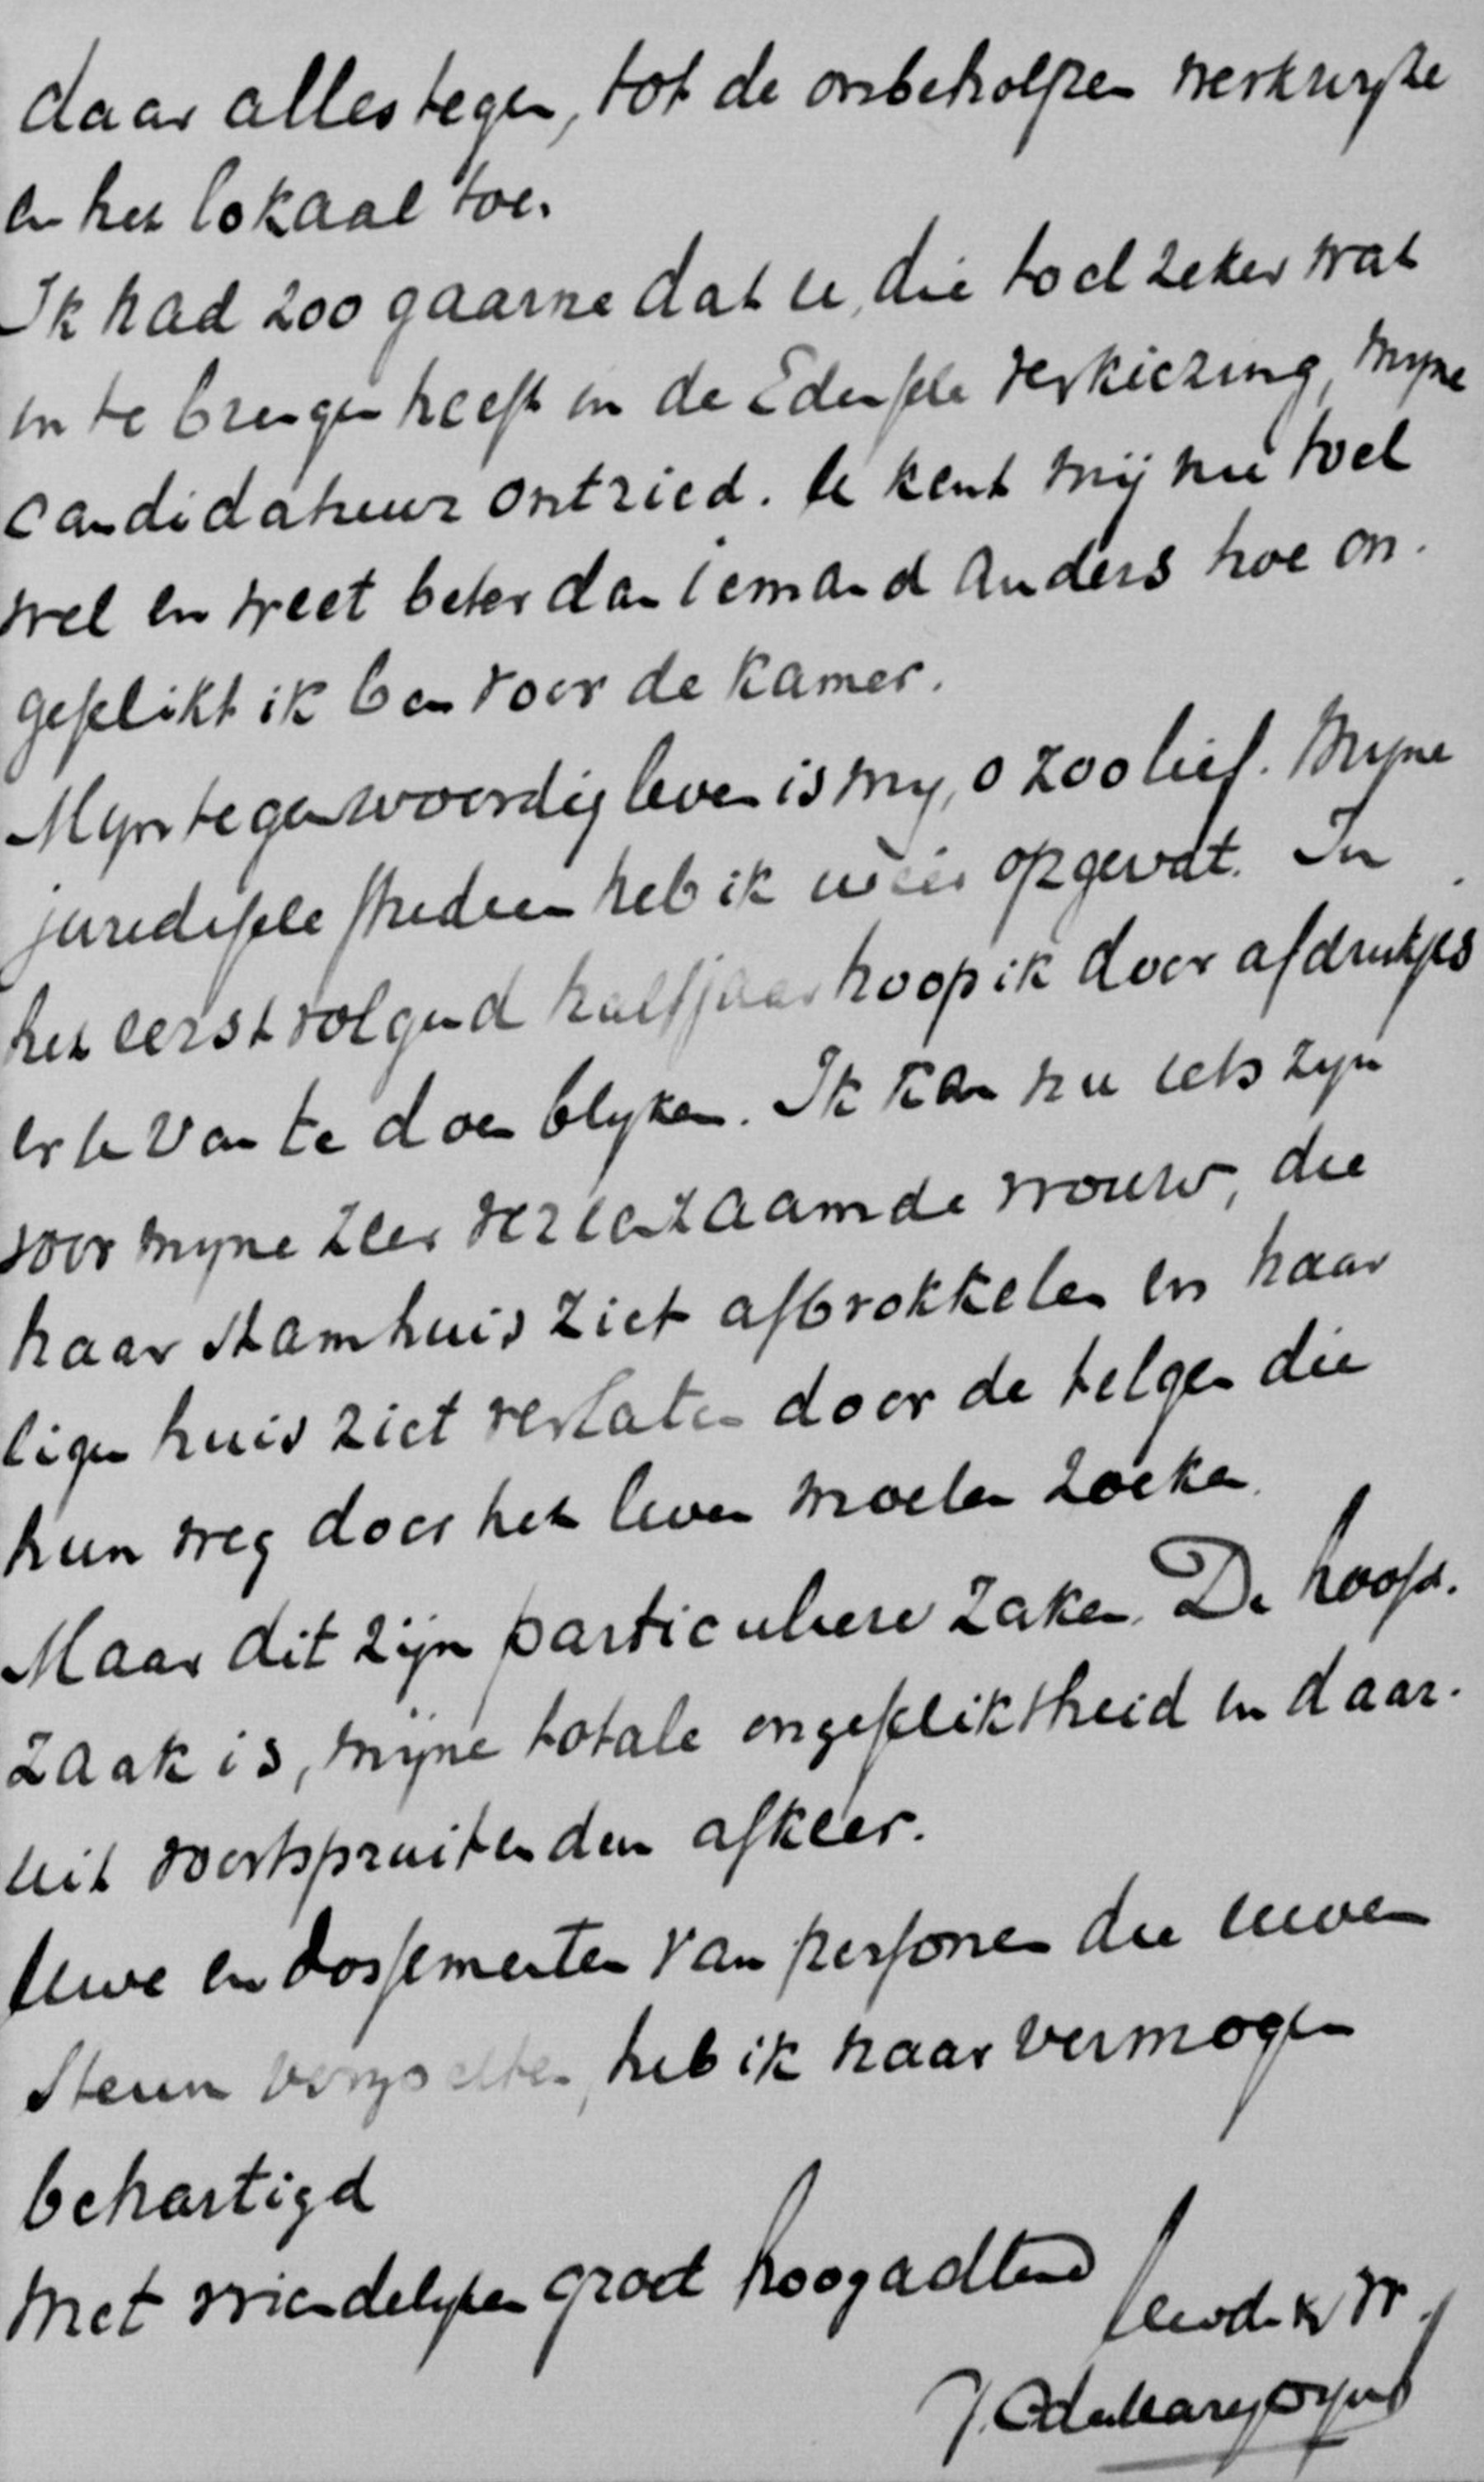 daar alles tegen, tot de onbeholpen werkwyze
en het lokaal toe.
Ik had zoo gaarne dat u, die toch zeker wat
in te brengen heeft in de Edensche verkiezing, myne
candidatuur ontried. U kent mij nu toch
wel en weet beter dan iemand anders hoe on-
geschikt ik ben voor de Kamer.
Myn tegenwoordig leven is my, o zoo lief. Myne
juredische studien heb ik weer opgevat. In
het eerstvolgend halfjaar hoop ik door afdrukjes
er u van te doen blyken. Ik kan nu iets zyn
voor myne zeer vereenzaamde vrouw, die
haar stamhuis ziet afbrokkelen en haar
eigen huis ziet verlaten door de telgen die
hun weg door het leven moeten zoeken.
Maar dit zijn particuliere zaken. De hoofd-
zaak is, mijne totale ongeschiktheid en daar-
uit voortspruitenden afkeer.
Uwe endossementen van personen die uwen
steun verzochten, heb ik naar vermogen
behartigd
Met vriendelyken groet hoogachtend
Uwd. dw